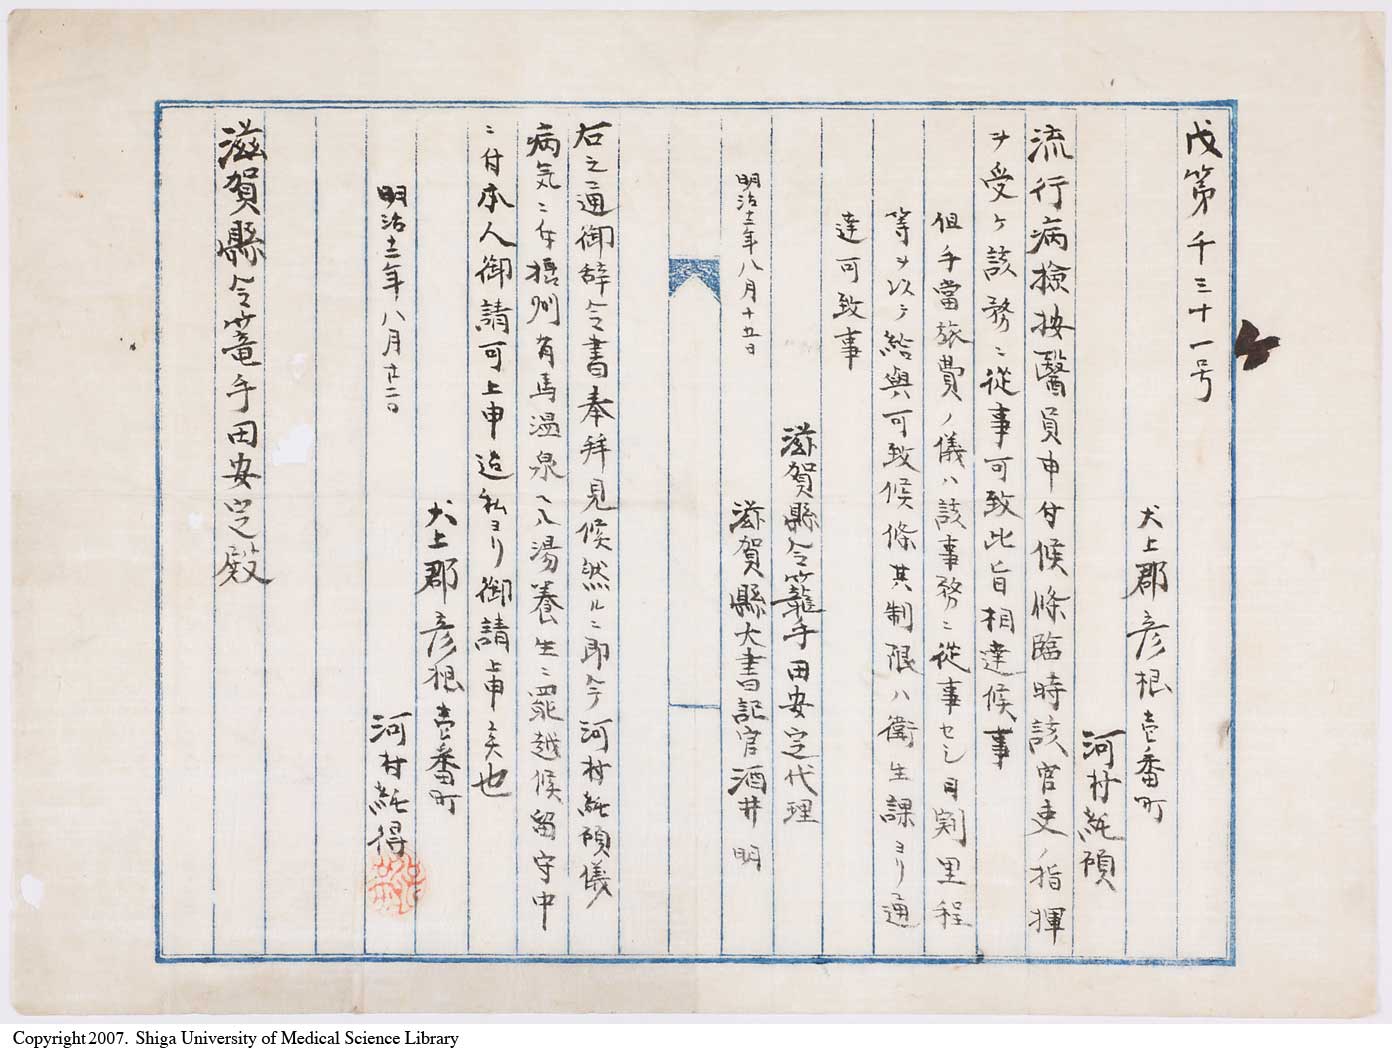 戊第千三十一号
犬上郡彦根壱番町
河村純碩
流行病撿按醫員申付候條臨時該官吏ノ指揮
ヲ受ケ該務ニ従事可致此旨相達候事
但手當旅費ノ儀ハ該事務ニ従事セシ日割里程
等ヲ以テ給與可致候條其制限ハ衛生課ヨリ通
達可致事
滋賀縣令籠手田安定代理
明治十二年八月十五日 滋賀縣大書記官酒井明
右之通御辞令書奉拜見候然ルニ即今河村純碩儀
病気ニ付摂州有馬温泉ヘ入湯養生ニ罷越候留守中
ニ付本人御請可上申迄私ヨリ御請上申候也
犬上郡彦根壱番町
明治十二年八月廿二日 河村純得
滋賀縣令篭手田安定殿
Copyright 2007. Shiga University of Medical Science Library